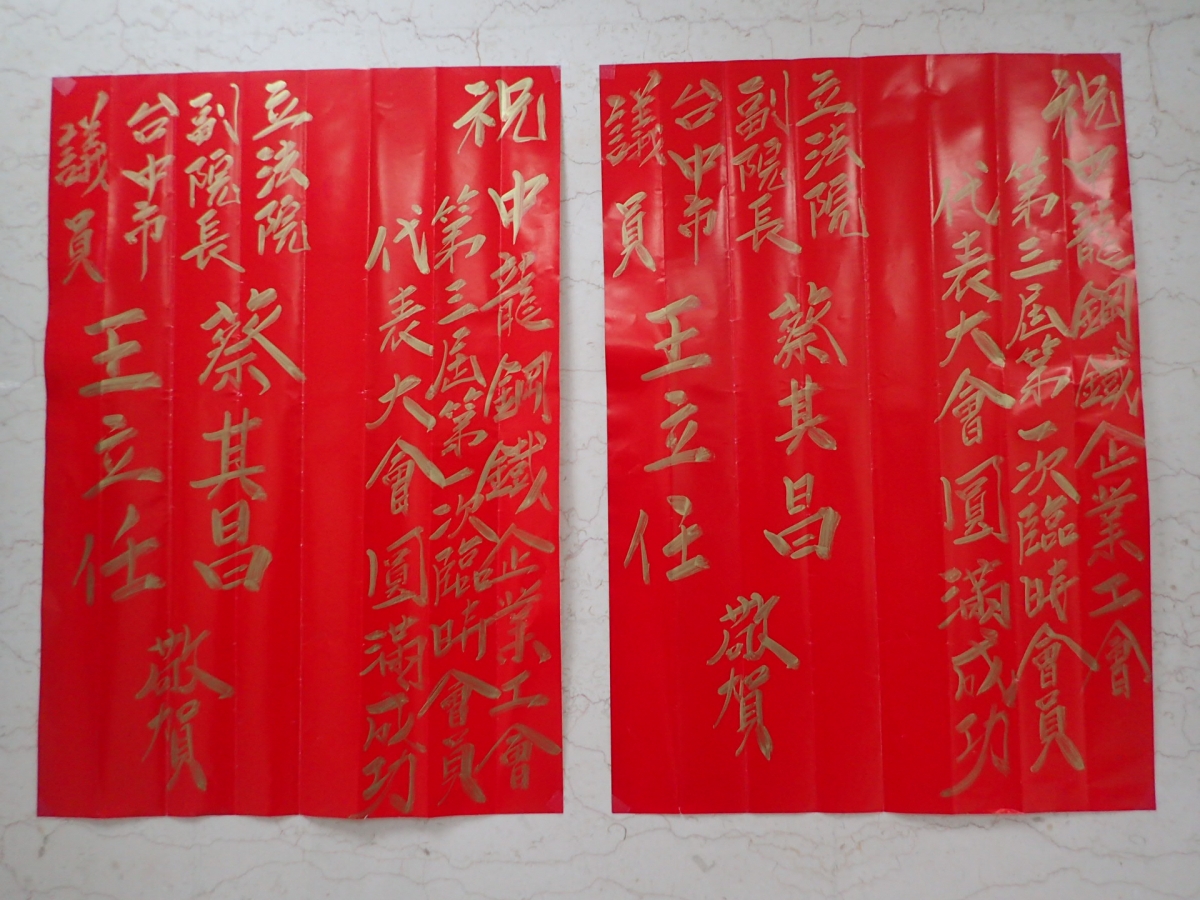 祝中龍鋼鐵企業工會
第三屆第一次臨時會員
代表大會圓滿成功
立法院
副院長 蔡其昌
台中市
議員 王立任
敬賀
祝中龍鋼鐵企業工會
第三屆第一次臨時會員
代表大會圓滿成功
立法院
副院長 蔡其昌
台中市
議員 王立任
敬賀